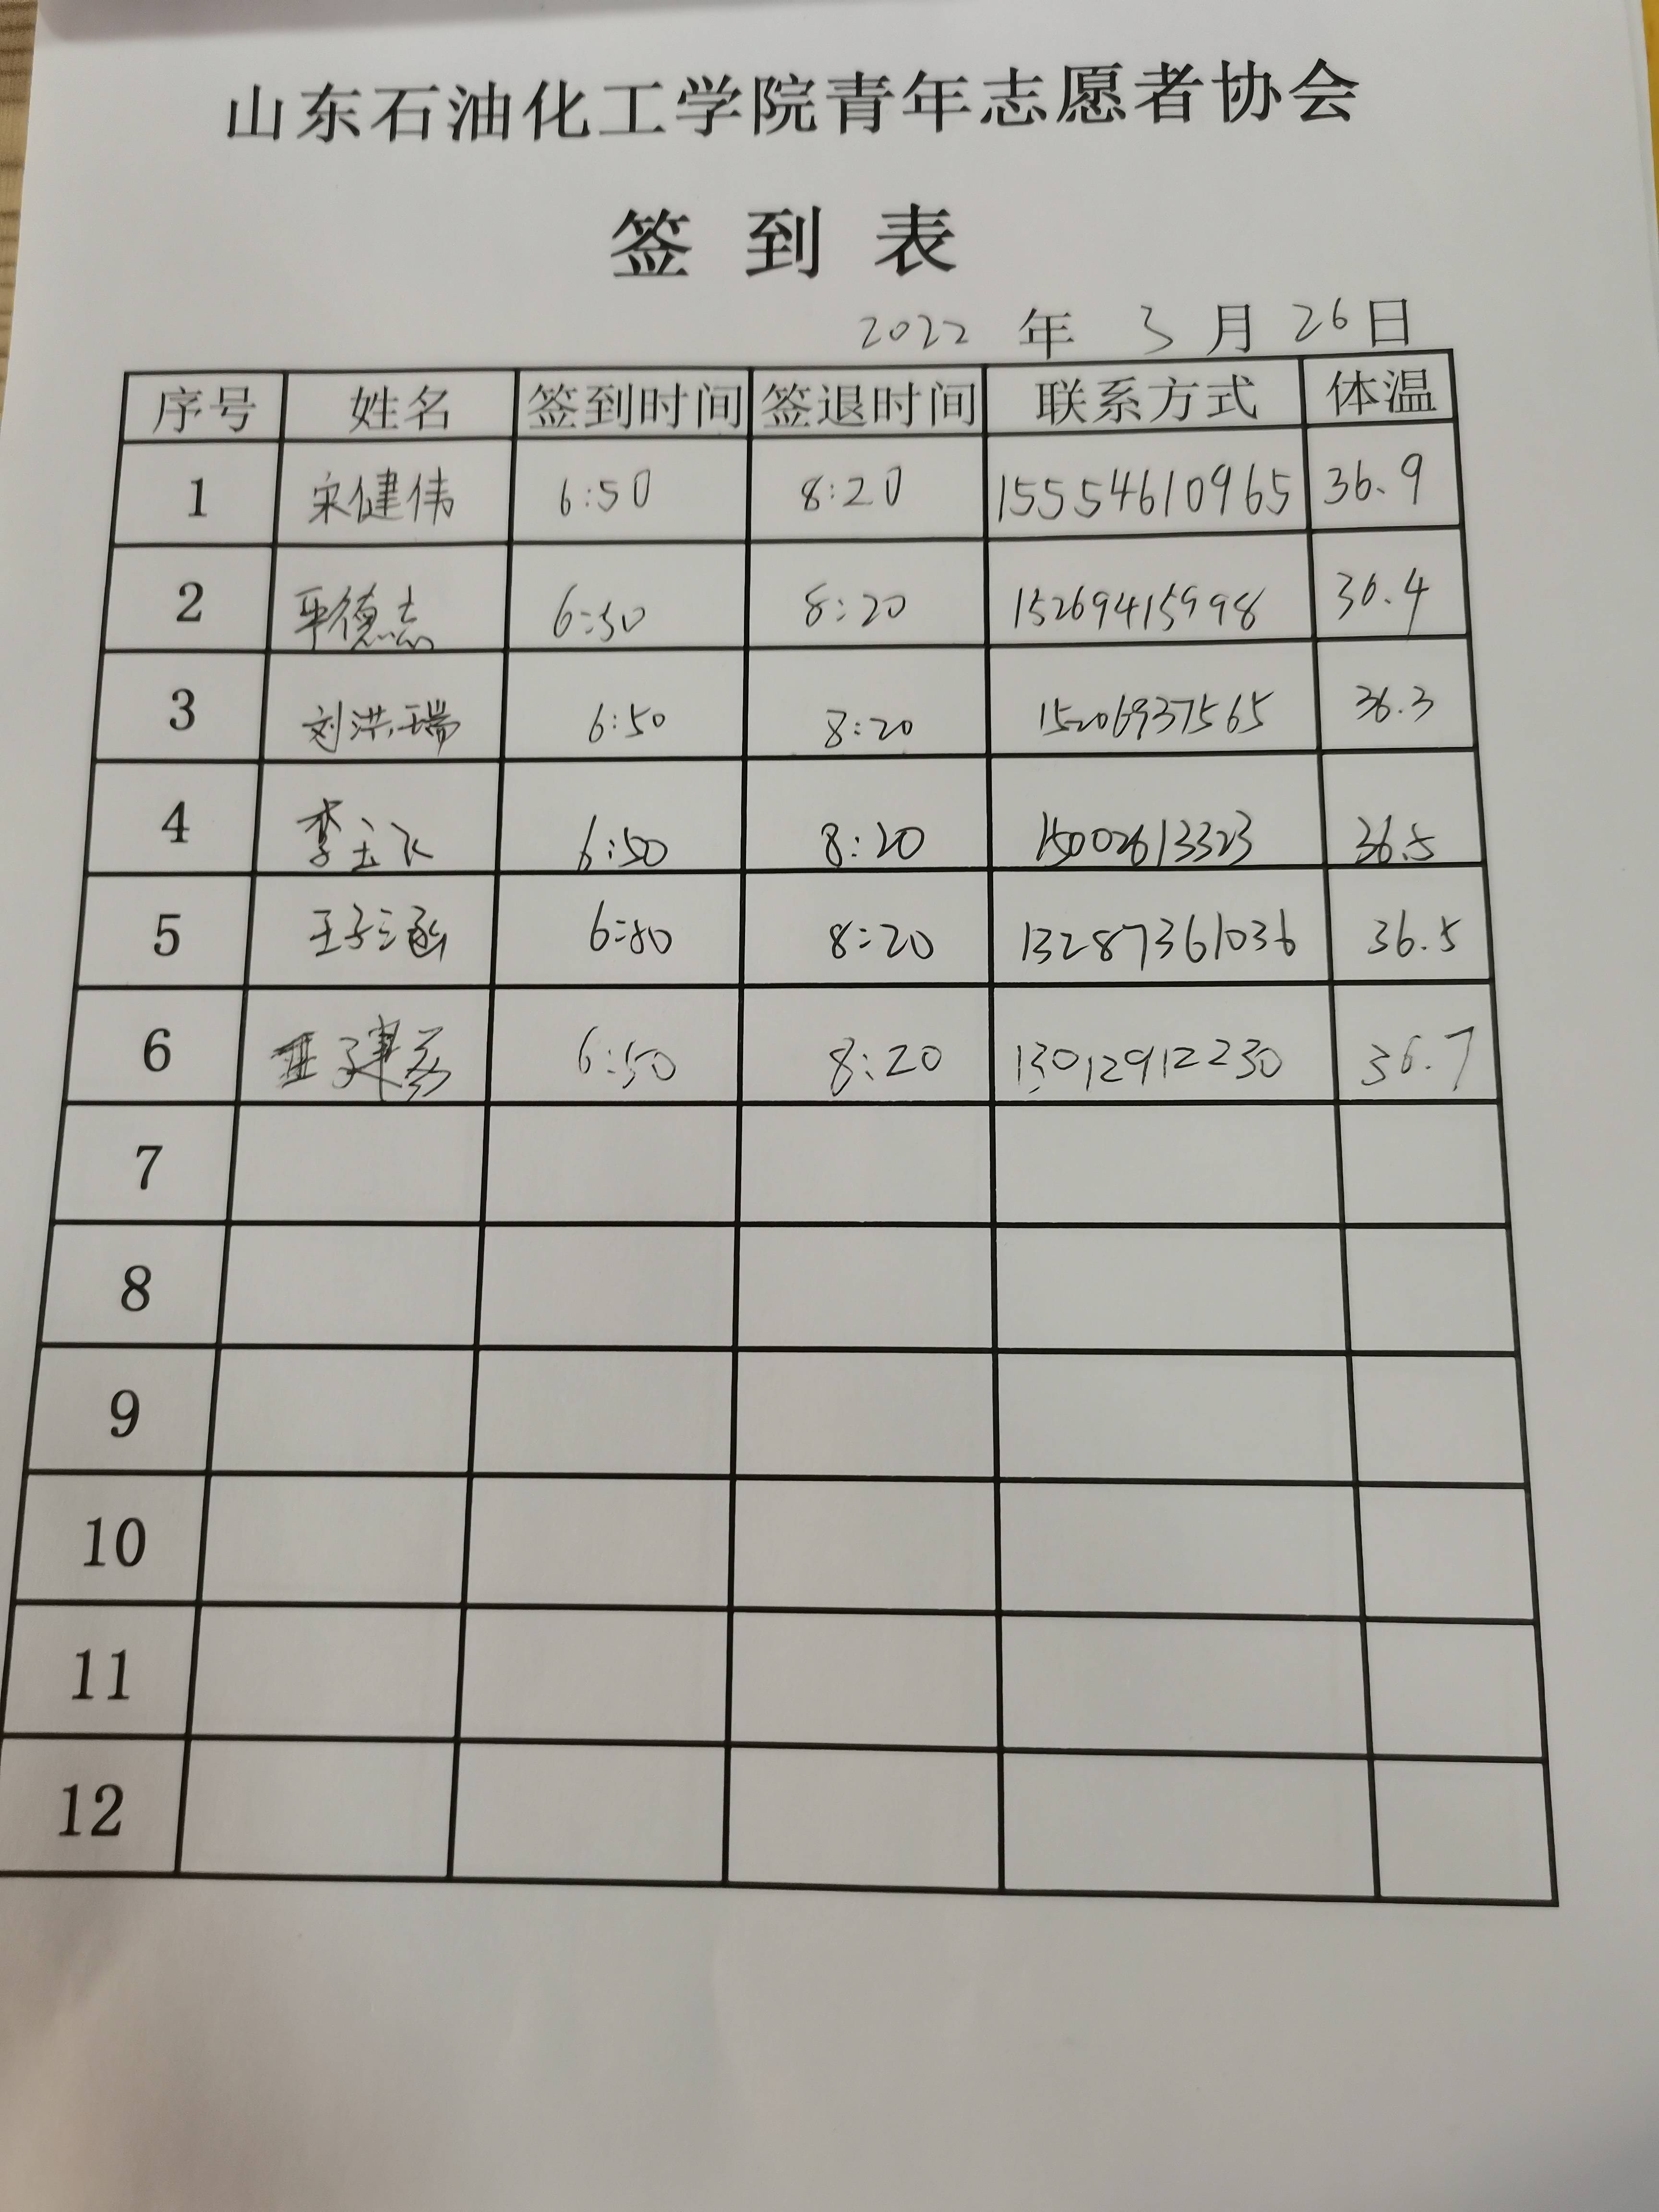 山东石油化工学院青年志愿者协会
签到表
2022 年 3 月 26 日
序号 姓名 签到时间 签退时间 联系方式 体温
1 宋健伟 6:50 8:20 15554610965 36.9
2 德志 6:50 8:20 15269415998 36.4
3 刘洪瑞 6:50 8:20 15206937565 36.3
4 李玉飞 6:50 8:20 15002613323 36.5
5 王子涵 6:50 8:20 13287361036 36.5
6 6:50 8:20 13012912230 36.7
7
8
9
10
11
12